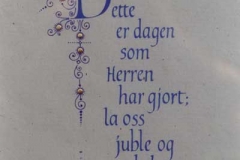 Dette
er dagen
som
Herren
har gjort;
la oss
juble og